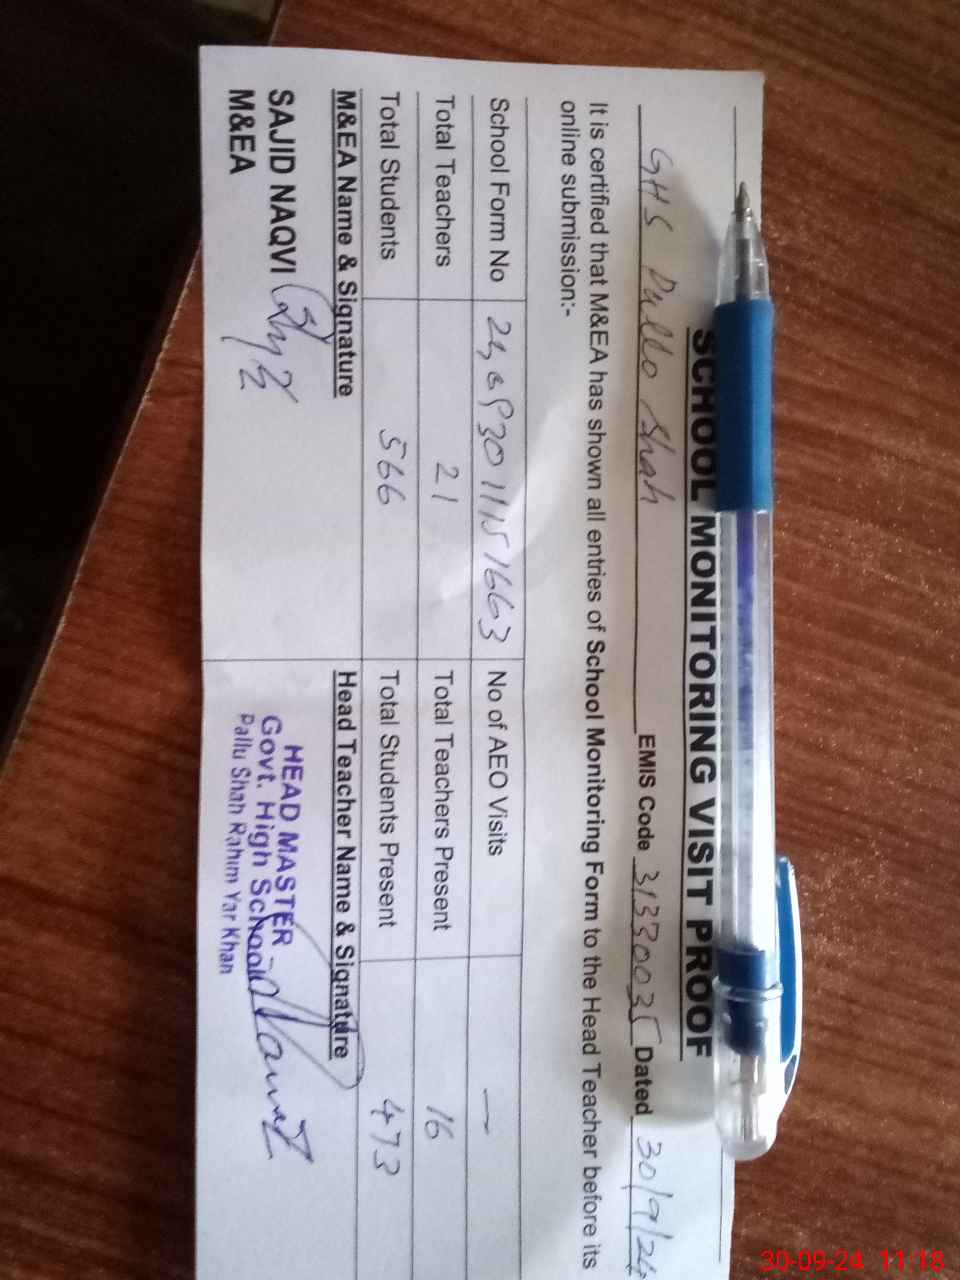 SCHOOL MONITORING VISIT PROOF
GHS Pallo Shah EMIS Code 31330035 Dated 30/9/24
It is certified that M&EA has shown all entries of School Monitoring Form to the Head Teacher before its
online submission:-
School Form No No of AEO Visits —
Total Teachers 21 Total Teachers Present 16
Total Students 566 Total Students Present 473
M&EA Name & Signature Head Teacher Name & Signature
SAJID NAQVI
M&EA
HEAD MASTER
Govt. High School
Pallu Shah Rahim Yar Khan
30-09-24 11:18